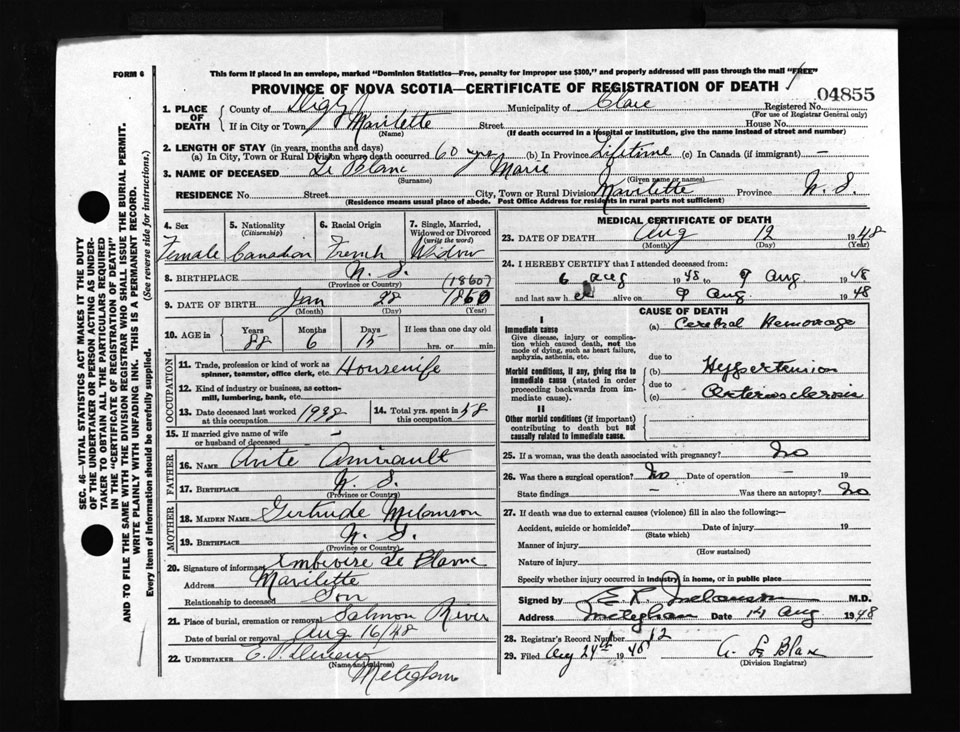 FORM 6
This form if placed in an envelope, marked "Dominion Statistics—Free, penalty for improper use $300," and properly addressed will pass through the mail "FREE"
PROVINCE OF NOVA SCOTIA—CERTIFICATE OF REGISTRATION OF DEATH
04855
1. PLACE OF DEATH
County of Digby Municipality of Clare Registered No.
(For use of Registrar General only)
If in City or Town Mavilette Street House No.
(Name) (If death occurred in a hospital or institution, give the name instead of street and number)
2. LENGTH OF STAY (in years, months and days)
(a) In City, Town or Rural Division where death occurred 60 yrs (b) In Province Lifetime (c) In Canada (if immigrant) —
3. NAME OF DECEASED Le Blanc Marie
(Surname) (Given name or names)
RESIDENCE No. Street City, Town or Rural Division Mavilette Province N. S.
(Residence means usual place of abode. Post Office Address for residents in rural parts not sufficient)
4. Sex 5. Nationality 6. Racial Origin 7. Single, Married,
(Citizenship) Widowed or Divorced
(write the word)
Female Canadian French Widow
8. BIRTHPLACE N. S.
(Province or Country) (1860?)
9. DATE OF BIRTH Jan 28 1860
(Month) (Day) (Year)
10. AGE in Years Months Days If less than one day old
88 6 15 hrs. or min.
OCCUPATION
11. Trade, profession or kind of work as
spinner, teamster, office clerk, etc. Housewife
12. Kind of industry or business, as cotton-
mill, lumbering, bank, etc.
13. Date deceased last worked at this occupation 1938
14. Total yrs. spent in this occupation 58
15. If married give name of wife
or husband of deceased —
FATHER
16. NAME Amirault
17. BIRTHPLACE N. S.
(Province or Country)
MOTHER
18. MAIDEN NAME Gertrude Melanson
19. BIRTHPLACE N. S.
(Province or Country)
20. Signature of informant Le Blanc
Address Mavilette
Relationship to deceased Son
21. Place of burial, cremation or removal Salmon River
Date of burial or removal Aug 16/48
22. UNDERTAKER E.
(Name and address)
Meteghan
MEDICAL CERTIFICATE OF DEATH
23. DATE OF DEATH Aug 12 1948
(Month) (Day) (Year)
24. I HEREBY CERTIFY that I attended deceased from:
6 Aug 1948 to 9 Aug. 1948
and last saw her alive on 9 Aug. 1948
CAUSE OF DEATH
I
Immediate cause
Give disease, injury or complication which caused death, not the mode of dying, such as heart failure, asphyxia, asthenia, etc.
(a) Cerebral Hemorrage
due to
Morbid conditions, if any, giving rise to immediate cause (stated in order proceeding backwards from immediate cause).
(b) Hypertension
due to
(c) Arteriosclerosis
II
Other morbid conditions (if important) contributing to death but not causally related to immediate cause.
25. If a woman, was the death associated with pregnancy? No
26. Was there a surgical operation? No Date of operation — 19
State findings — Was there an autopsy? No
27. If death was due to external causes (violence) fill in also the following:—
Accident, suicide or homicide? Date of injury 19
(State which)
Manner of injury
(How sustained)
Nature of injury
Specify whether injury occurred in industry, in home, or in public place
Signed by E. R. Melanson M.D.
Address Meteghan Date 14 Aug 1948
28. Registrar's Record Number 12
29. Filed Aug 24th 1948 A. Le Blanc
(Division Registrar)
SEC. 46—VITAL STATISTICS ACT MAKES IT THE DUTY
OF THE UNDERTAKER OR PERSON ACTING AS UNDER-
TAKER TO OBTAIN ALL THE PARTICULARS REQUIRED
IN THE "CERTIFICATE OF REGISTRATION OF DEATH"
AND TO FILE THE SAME WITH THE DIVISION REGISTRAR WHO SHALL ISSUE THE BURIAL PERMIT.
WRITE PLAINLY WITH UNFADING INK. THIS IS A PERMANENT RECORD.
Every item of information should be carefully supplied. (See reverse side for instructions.)